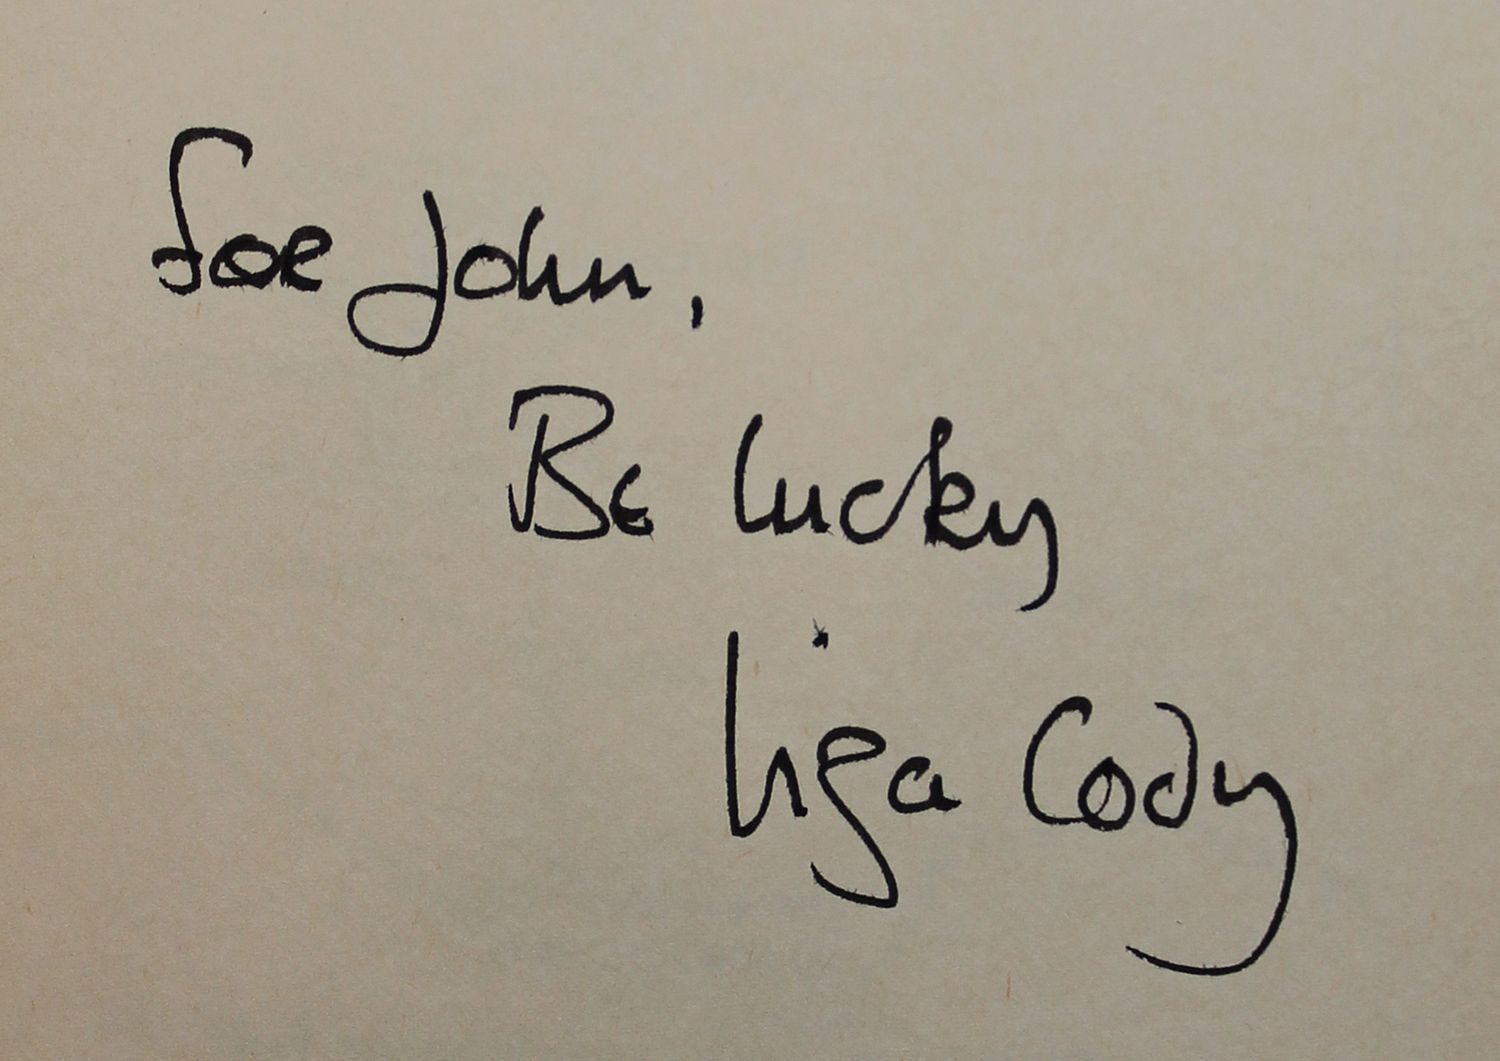 For John,
Be lucky
Liza Cody